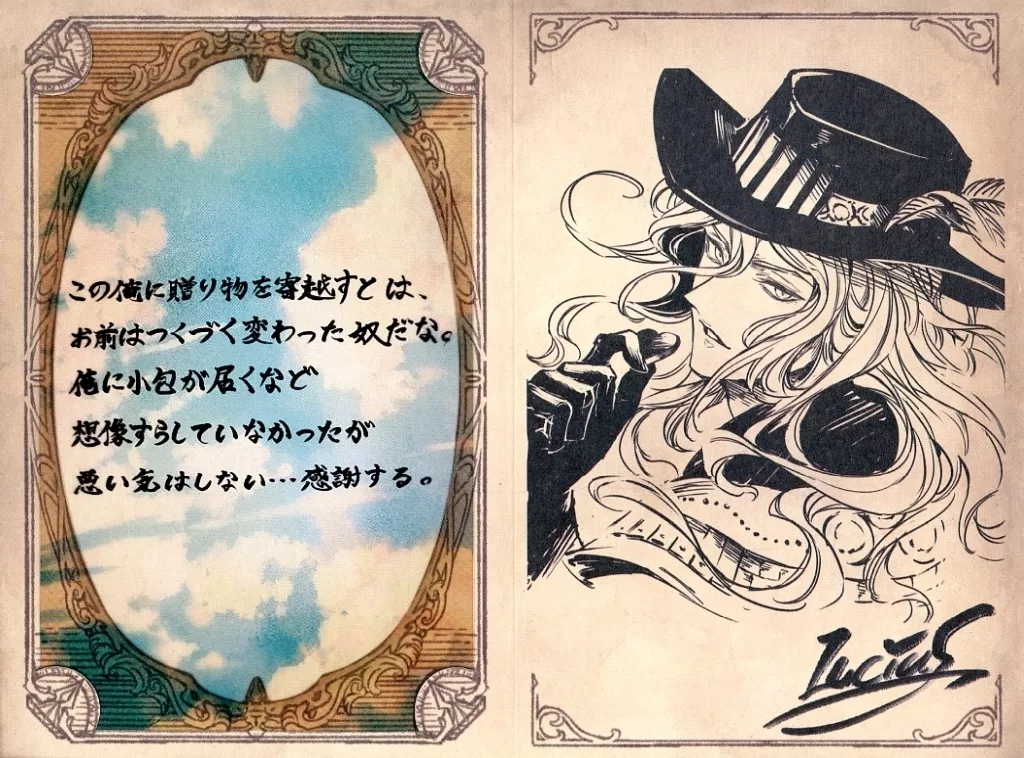 この俺に贈り物を寄越すとは、
お前はつくづく変わった奴だな。
俺に小包が届くなど
想像すらしていなかったが
悪い気はしない…感謝する。
Lucius